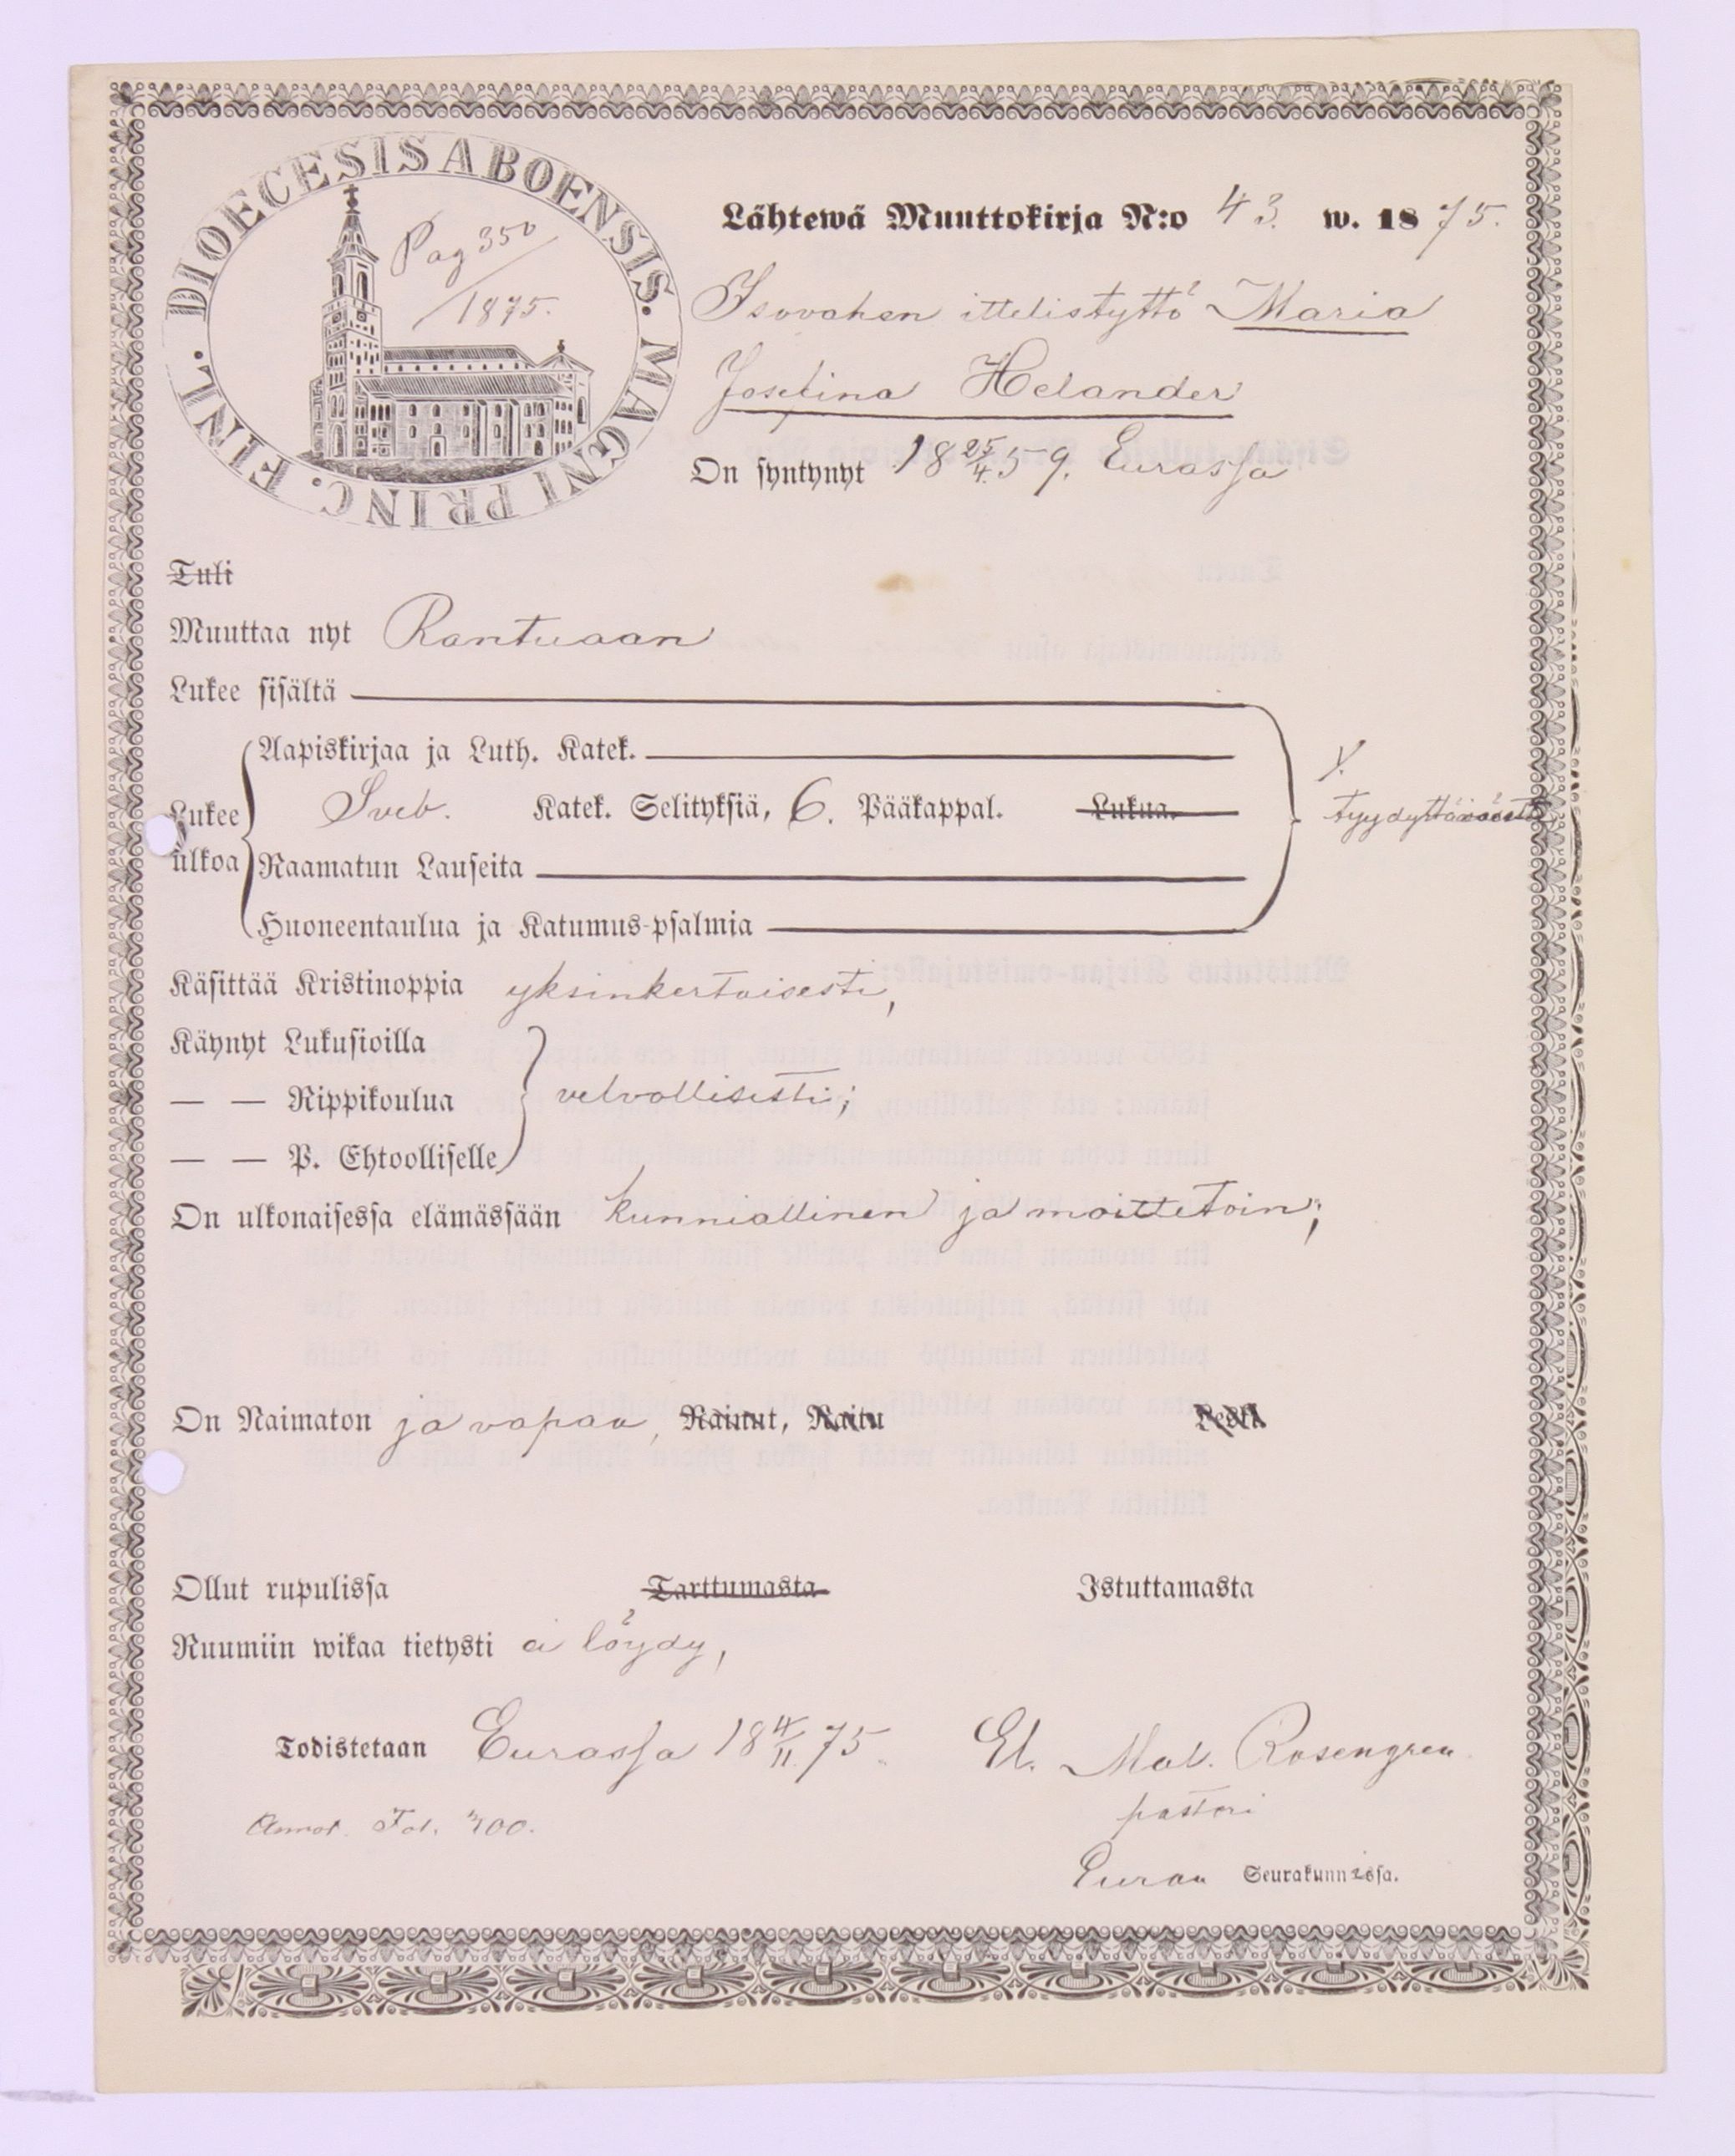 DIOECESIS ABOENSIS. MAGNI PRINC. FINL.
Pag 350
1875.
Lähtewä Muuttokirja N:o 43. w. 1875.
Isovahen ittelistyttö Maria
Josefina Helander
On syntynyt 18 25/4. 59. Eurassa
Tuli
Muuttaa nyt Rantuaan
Lukee sisältä
Aapiskirjaa ja Luth. Katek.
Lukee ulkoa
Sveb. Katek. Selityksiä, 6. Pääkappal. Lukua.
tyydyttäväästi
Raamatun Lauseita
Huoneentaulua ja Katumus-psalmia
Käsittää Kristinoppia yksinkertaisesti,
Käynyt Lukusioilla
— — Rippikoulua velvollisesti;
— — P. Ehtoolliselle
On ulkonaisessa elämässään kunniallinen ja moittetoin;
On Naimaton ja vapaa, Nainut, Naitu Leski
Ollut rupulissa Tarttumasta Istuttamasta
Ruumiin wikaa tietysti ei löydy,
Todistetaan Eurassa 18 4/11. 75. El. Mal. Rosengren
pastori
Annot. Fol. 400.
Euran Seurakunnissa.